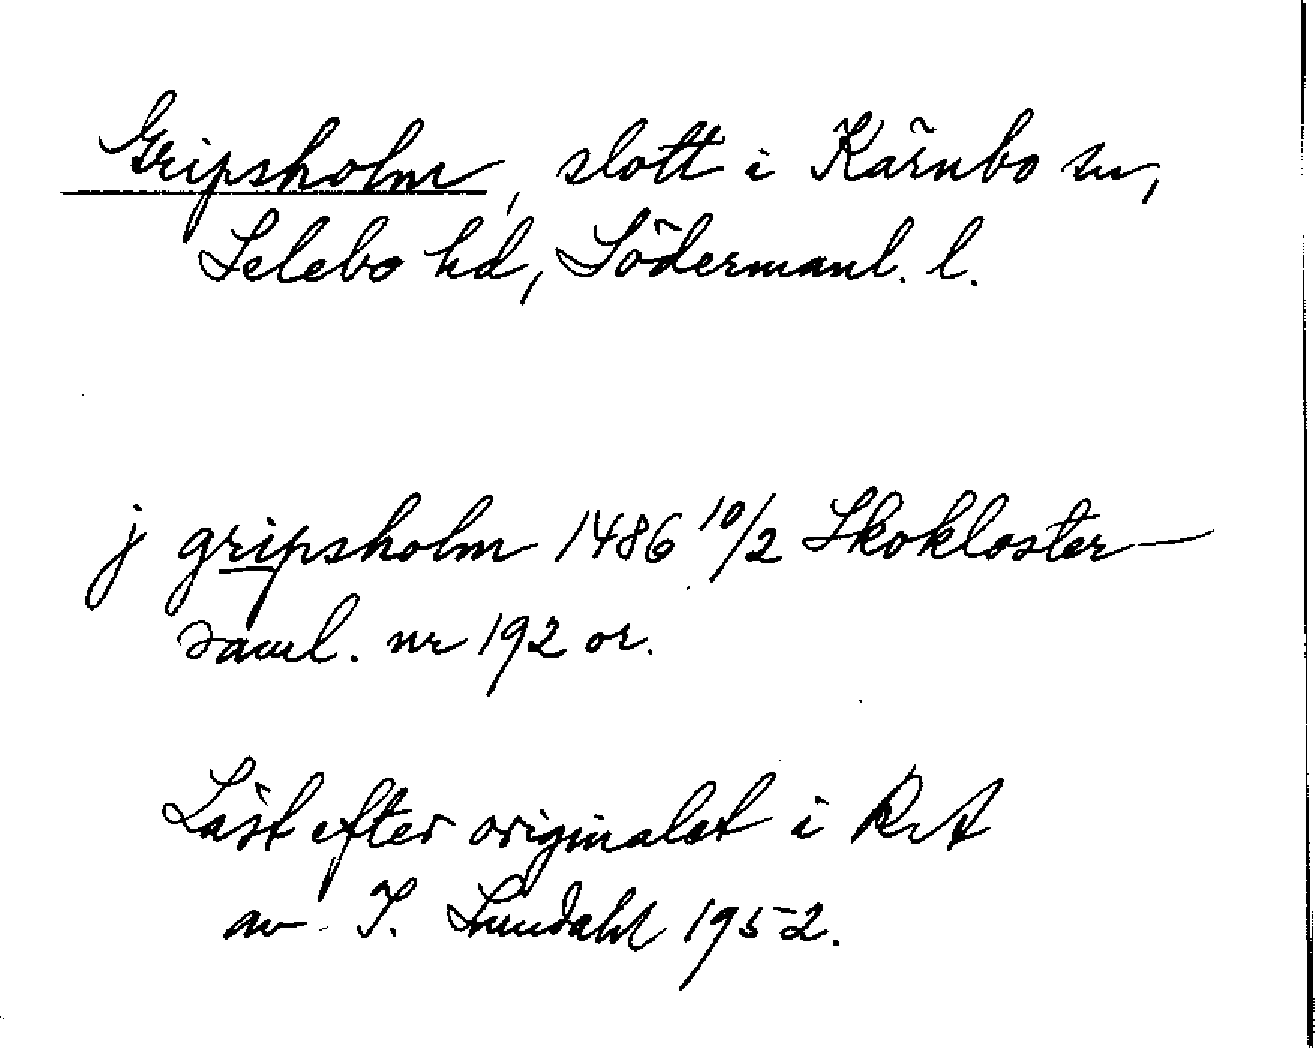 Gripsholm, slott i Kärnbo sn,
Selebo hd, Södermanl. l.
j gripsholm 1486 10/2 Skokloster-
saml. nr 192 or.
Läst efter originalet i RA
av I. Lundahl 1952.